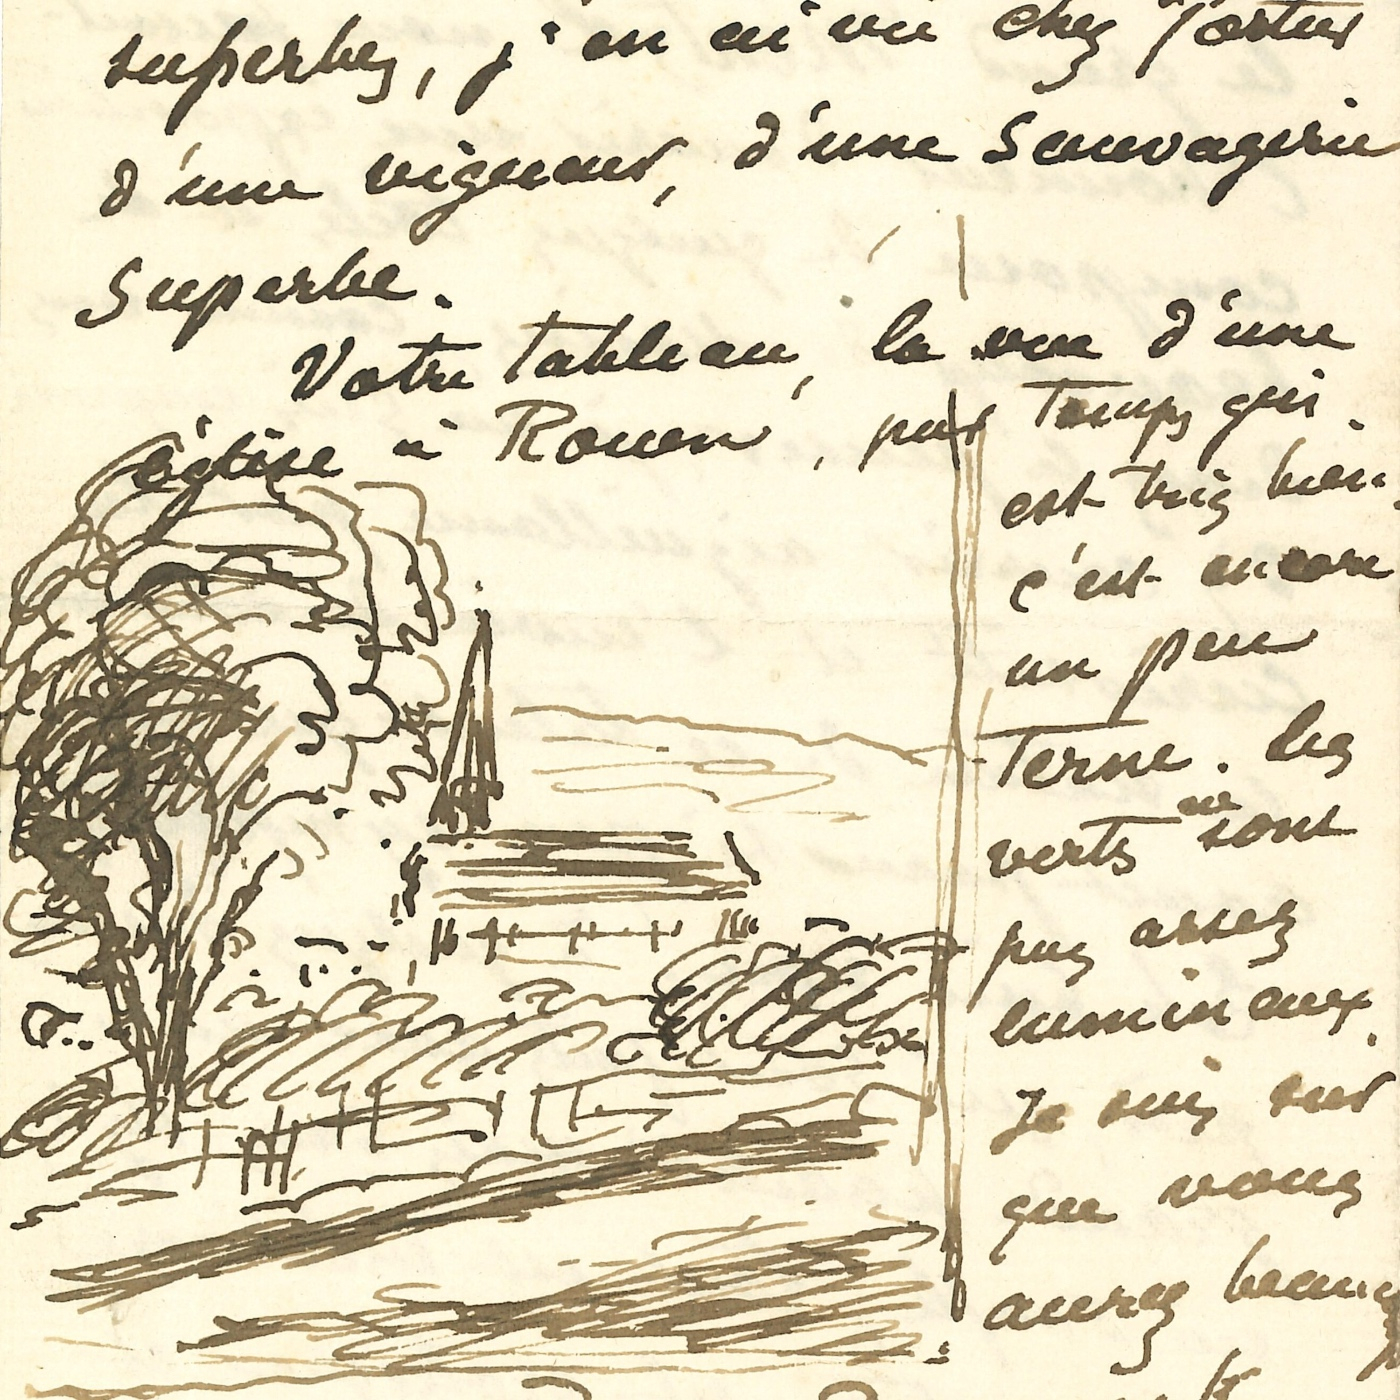 superbes, j'en ai vu chez Portier
d'une vigueur, d'une sauvagerie
superbe.
Votre tableau, la vue d'une
église à Rouen, par temps gris.
est très bien.
c'est encore
un peu
terne. les
verts ne sont
pas assez
lumineux.
Je suis sur
que vous
aurez